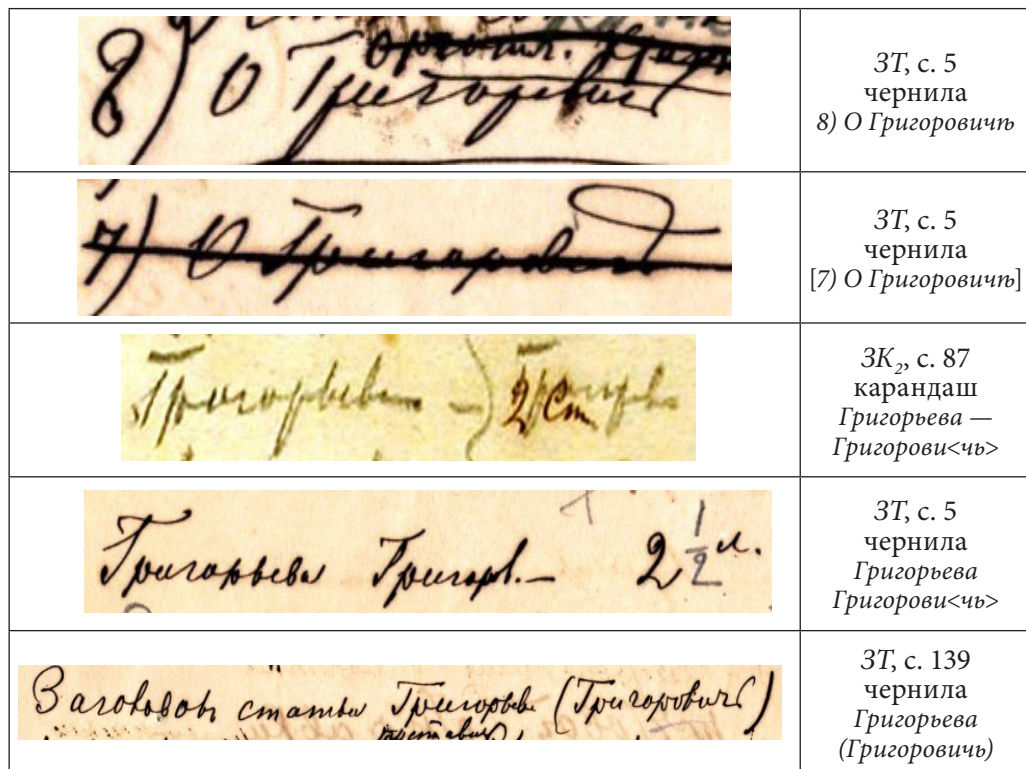 8) О Григоровичѣ
ЗТ, с. 5
чернила
8) О Григоровичѣ
7) О Григоровичѣ
ЗТ, с. 5
чернила
[7) О Григоровичѣ]
Григорьева — 2 Ст
ЗК₂, с. 87
карандаш
Григорьева —
Григорови<чь>
Григорьева Григоров. — 2 1/2 л.
ЗТ, с. 5
чернила
Григорьева
Григорови<чь>
Заголовокъ статьи Григорьева (Григоровичь)
ЗТ, с. 139
чернила
Григорьева
(Григоровичь)